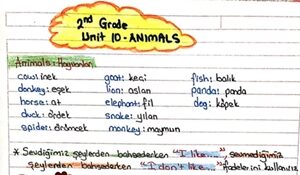 2nd Grade
Unit 10 - ANIMALS
Animals: Hayvanlar
cow: inek goat: keçi fish: balık
donkey: eşek lion: aslan panda: panda
horse: at elephant: fil dog: köpek
duck: ördek snake: yılan
spider: örümcek monkey: maymun
* Sevdiğimiz şeylerden bahsederken "I like..." sevmediğimiz
şeylerden bahsederken "I don't like..." ifadelerini kullanırız